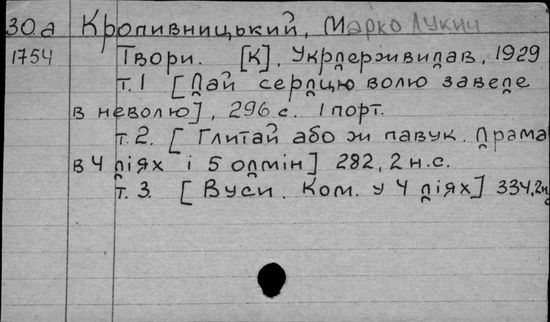 30а Кропивницький, Марко Лукич
1754 Твори. [К], Укрдержвидав, 1929
т. 1 [Дай серцю волю заведе
в неволю], 296 с. 1 порт.
т. 2. [Глитай або ж павук. Драма
в 4 діях і 5 одмін] 282, 2 н.с.
т. 3. [Вуси. Ком. у 4 діях] 334, 2н